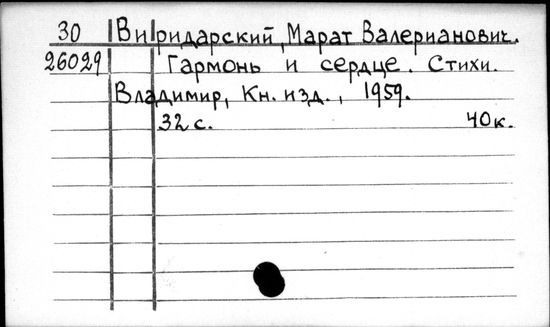 30 Виридарский, Марат Валерианович.
26029 Гармонь и сердце. Стихи.
Владимир, Кн. изд., 1959.
32 с. 40 к.